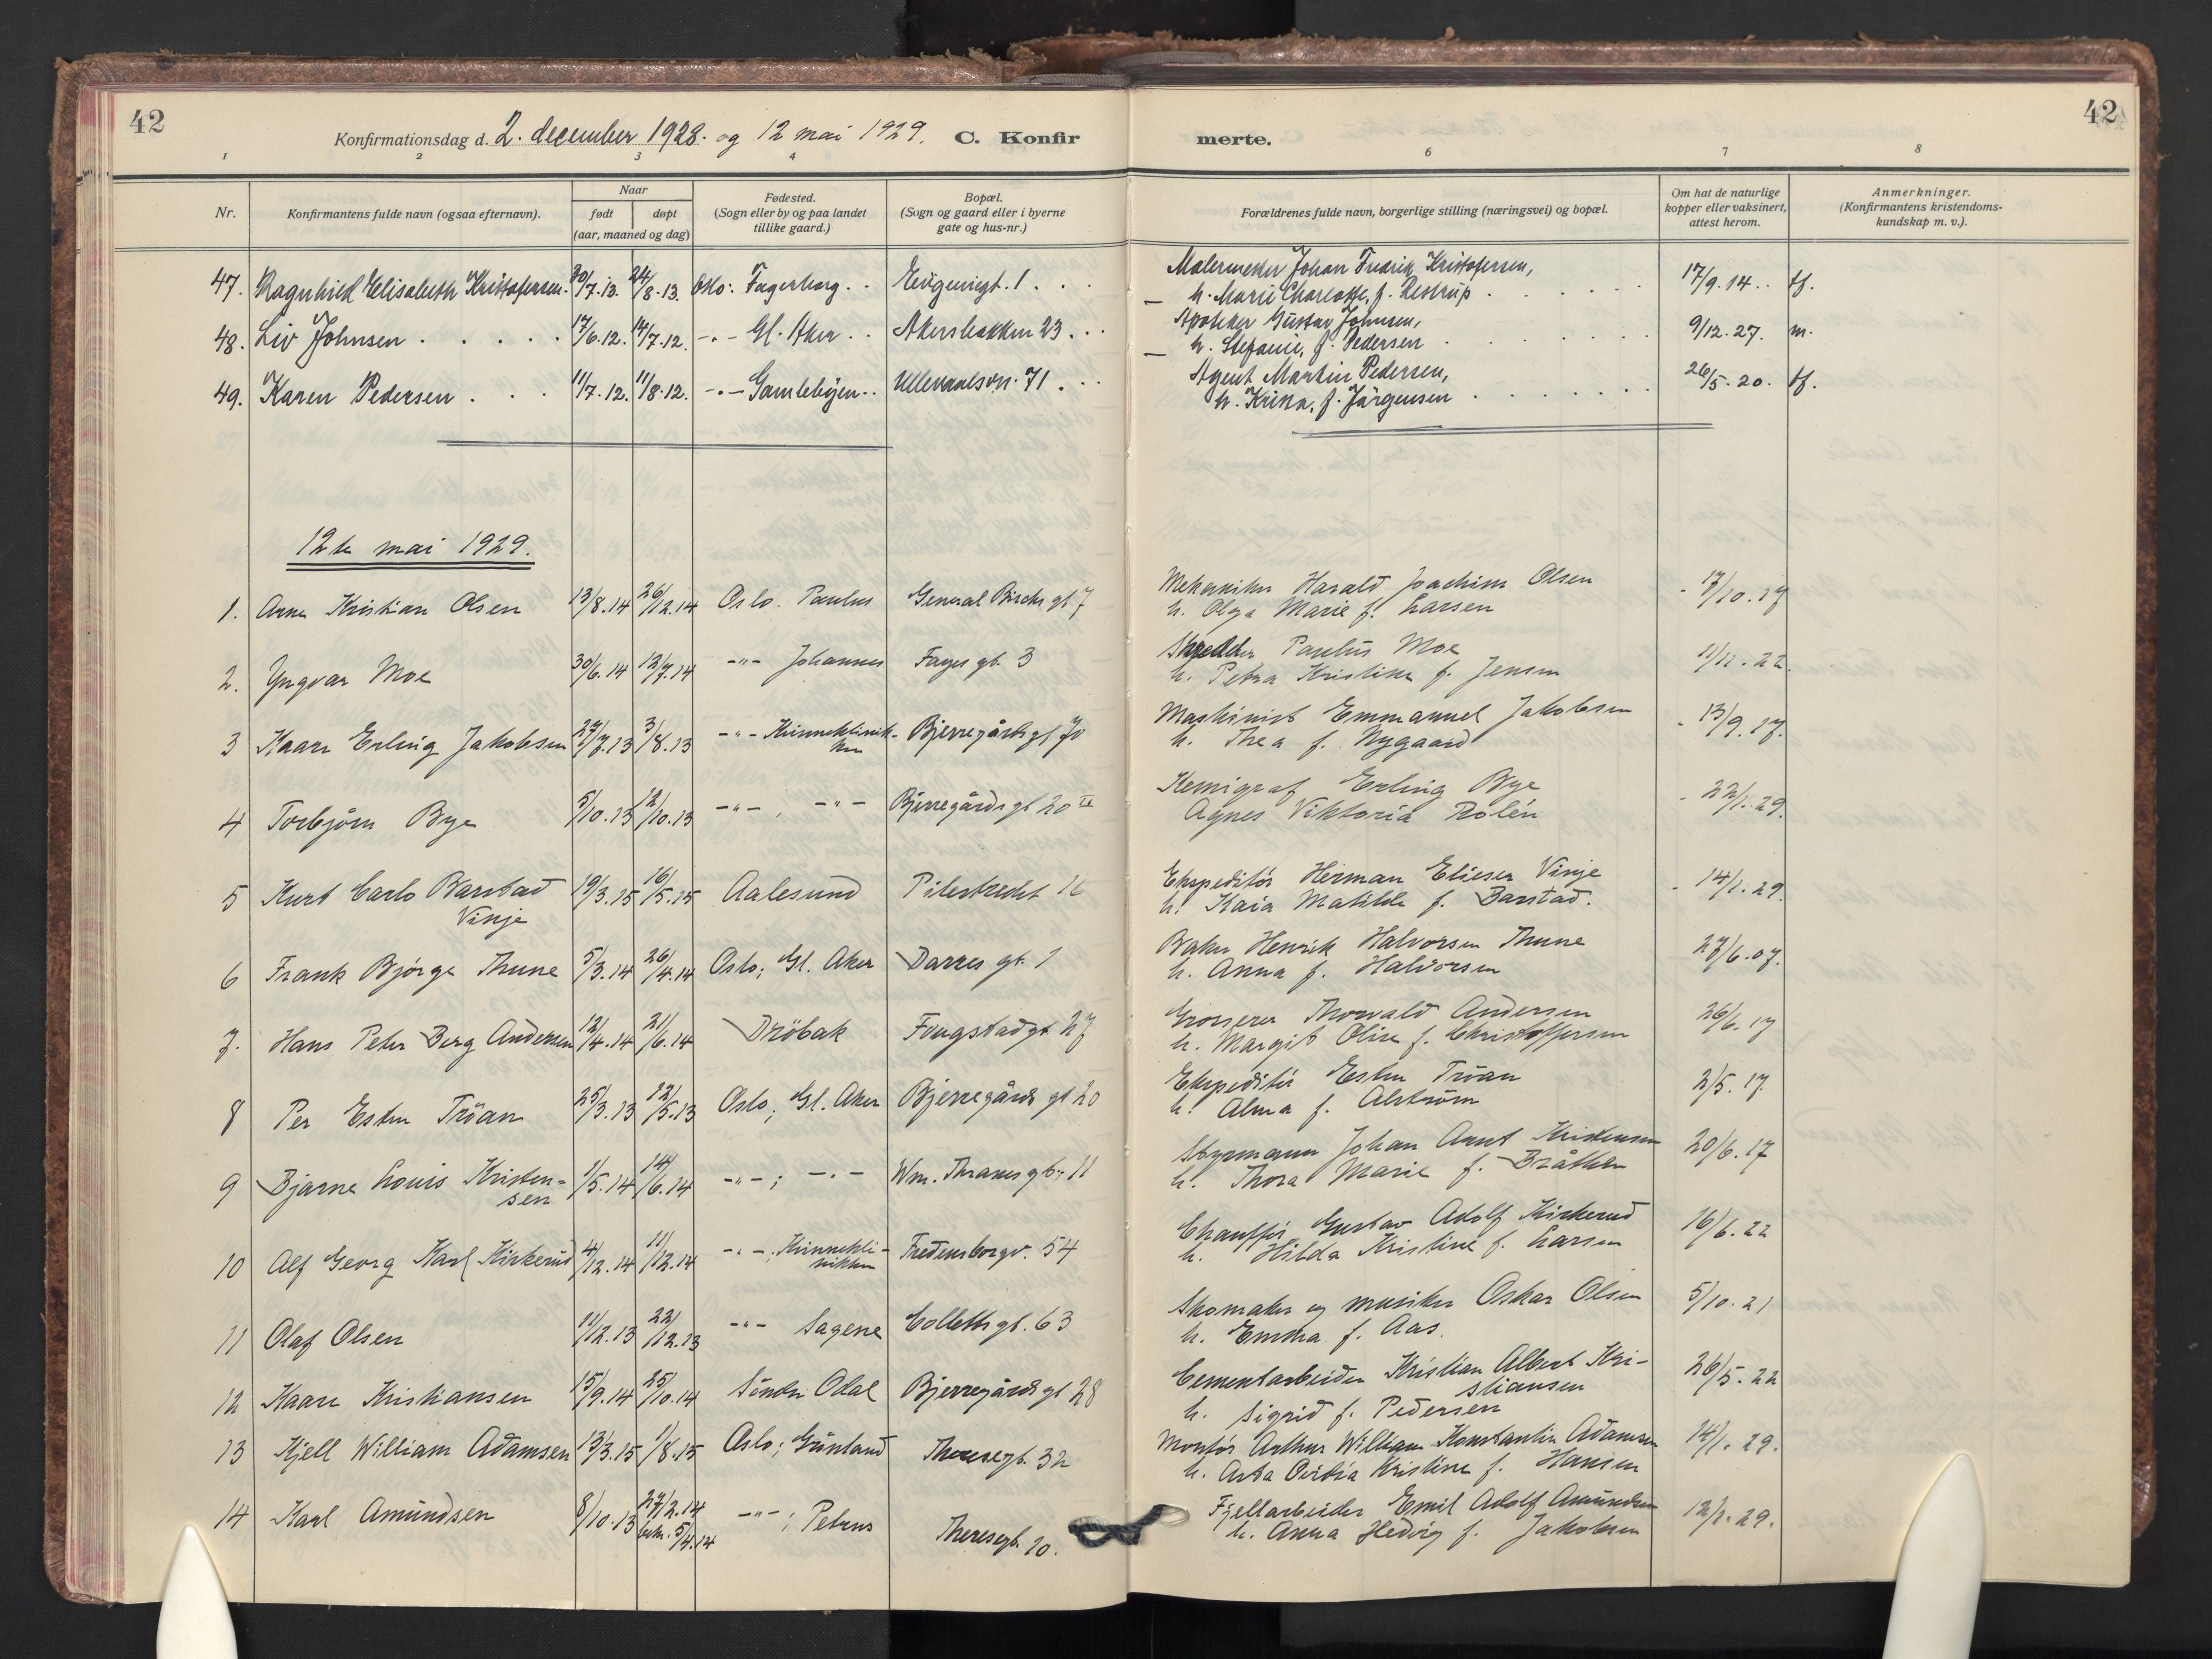 42
Konfirmationsdag d. 2. december 1928. og 12 mai 1929. C. Konfir
1 2 3 4
Nr. Konfirmantens fulde navn (ogsaa efternavn). Naar født døpt (aar, maaned og dag) Fødested. (Sogn eller by og paa landet tillike gaard.) Bopæl. (Sogn og gaard eller i byerne gate og hus-nr.)
47. Ragnhild Elisabeth Kristofersen. 30/7.13. 24/8.13. Oslo: Fagerborg . . 1 . . .
48. Liv Johnsen . . . . . 17/6.12. 14/7.12. -"- Gl. Aker . . Akersbakken 23 . . .
49. Karen Pedersen . . . 11/7.12. 11/8.12. -"- Gamlebyen . . Ullevaalsvn. 71 . . .
12te mai 1929.
1. Arne Kristian Olsen 13/8.14 26/12.14 Oslo. Paulus General Birchs gt 7
2. Yngvar Moe 30/6.14 12/7.14 -"- Johannes Fayes gt. 3
3 Kaare Erling Jakobsen 27/7.13 3/8.13 -"- Kvinneklinik-
ken Bjerregårds gt 70
4 Torbjörn Bye 5/10.13 12/10.13 -"- , -"- Bjerregårds gt 20 II
5 Kurt Carlo Barstad 19/3.15 16/5.15 Aalesund Pilestredet 16
Vinje
6 Frank Bjørge Thune 5/3.14 26/4.14 Oslo; Gl. Aker Darres gt. 1
7. Hans Peter Berg Andersen 12/4.14 21/6.14 Dröbak Fougstadgt 27
8 Per Esten Tröan 25/3.13 12/5.13 Oslo; Gl. Aker Bjerregårds gt 20
9 Bjarne Louis Kristen- 1/5.14 14/6.14 -"- ; -"- Wm. Thranes gt. 11
sen
10 Alf Georg Karl Kirkerud 4/12.14 11/12.14 -"- ; Kvinnekli-
nikken Fredensborgv. 54
11 Olaf Olsen 11/12.13 22/12.13 -"- Sagene Colletts gt. 63
12 Kaare Kristiansen 15/9.14 25/10.14 Söndre Odal Bjerregårds gt 28
13 Kjell William Adamsen 13/3.15 1/8.15 Oslo; Grünland Theresegt. 32
14 Karl Amundsen 8/10.13 27/2.14 -"- ; Petrus Theresegt. 20.
bekr. 5/4.14
42
merte.
6 7 8
Forældrenes fulde navn, borgerlige stilling (næringsvei) og bopæl. Om hat de naturlige kopper eller vaksinert, attest herom. Anmerkninger. (Konfirmantens kristendoms-kundskap m. v.).
Malermester Johan Fredrik Kristofersen,
h. Marie Charlotte, f. Restrup . . . . . . 17/9.14 . . tf.
Apoteker Gustav Johnsen,
h. Stefanie, f. Pedersen . . . . . . . 9/12.27. m.
Agent Martin Pedersen,
h. Krista, f. Jörgensen . . . . . . . 26/5.20. tf.
Mekaniker Harald Joachim Olsen
h. Olga Marie f. Larsen 17/10.17
Skredder Paulus Moe
h. Petra Kristine f. Jensen 11/11.22.
Maskinist Emmanuel Jakobsen
h. Thea f. Nygaard 13/9.17.
Kemigraf Erling Bye
Agnes Viktoria Rolén 22/1.29.
Ekspeditör Herman Elieser Vinje
h. Kaia Matilde f. Barstad. 14/1.29.
Baker Henrik Halvorsen Thune
h. Anna f. Halvorsen 27/6.07.
Grosserer Thorvald Andersen
h. Margit Olise f. Christoffersen 26/6.17
Ekspeditör Esten Tröan
h. Alma f. Alström 2/5.17.
Styrmann Johan Arnt Kristensen
h. Thora Marie f. Bråthen 20/6.17
Chaufför Gustav Adolf Kirkerud
h. Hilda Kristine f. Larsen 16/6.22
Skomaker og musiker Oskar Olsen
h. Emma f. Aas. 5/10.21
Cementarbeider Kristian Albert Kri-
stiansen
h. Sigrid f. Pedersen 26/5.22
Montör Arthur William Konstantin Adamsen
h. Asta Ovidia Kristine f. Hansen 14/1.29.
Fjellarbeider Emil Adolf Amundsen
h. Anna Hedvig f. Jakobsen 12/2.29.